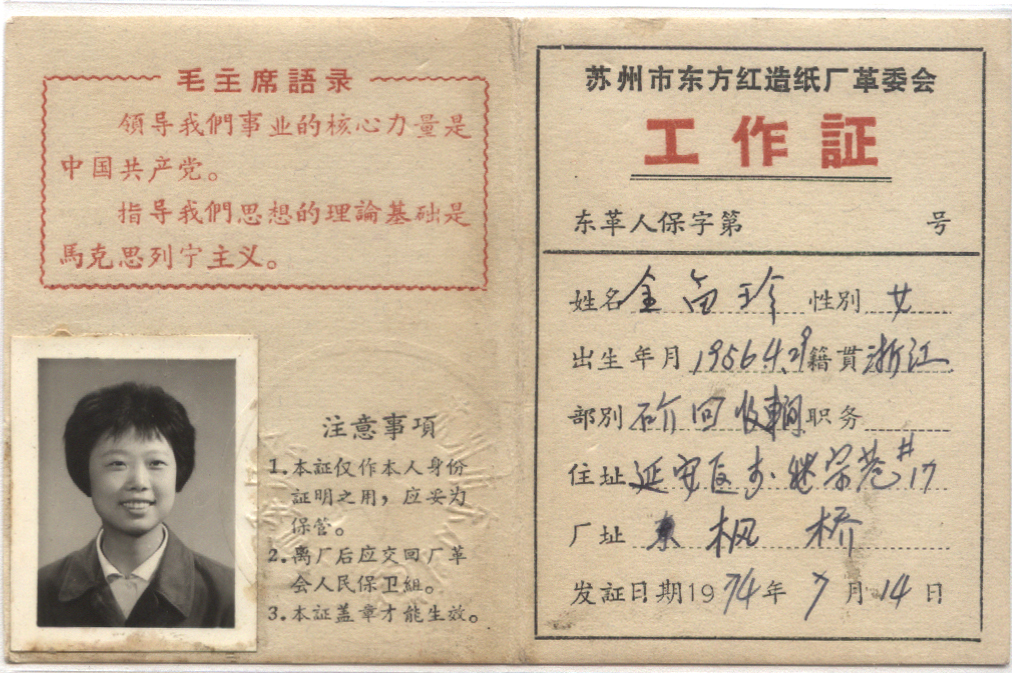 毛主席語录
領导我們事业的核心力量是
中国共产党。
指导我們思想的理論基础是
馬克思列宁主义。
注意事項
1.本証仅作本人身份
証明之用，应妥为
保管。
2.离厂后应交回厂革
会人民保卫組。
3.本証盖章才能生效。
苏州市东方红造纸厂革委会
工作証
东革人保字第 号
姓名 金 珍 性别 女
出生年月 1956.4.29 籍貫 浙江
部别 回收 职务
住址 延安区 #17
厂址 枫桥
发証日期1974年7月14日